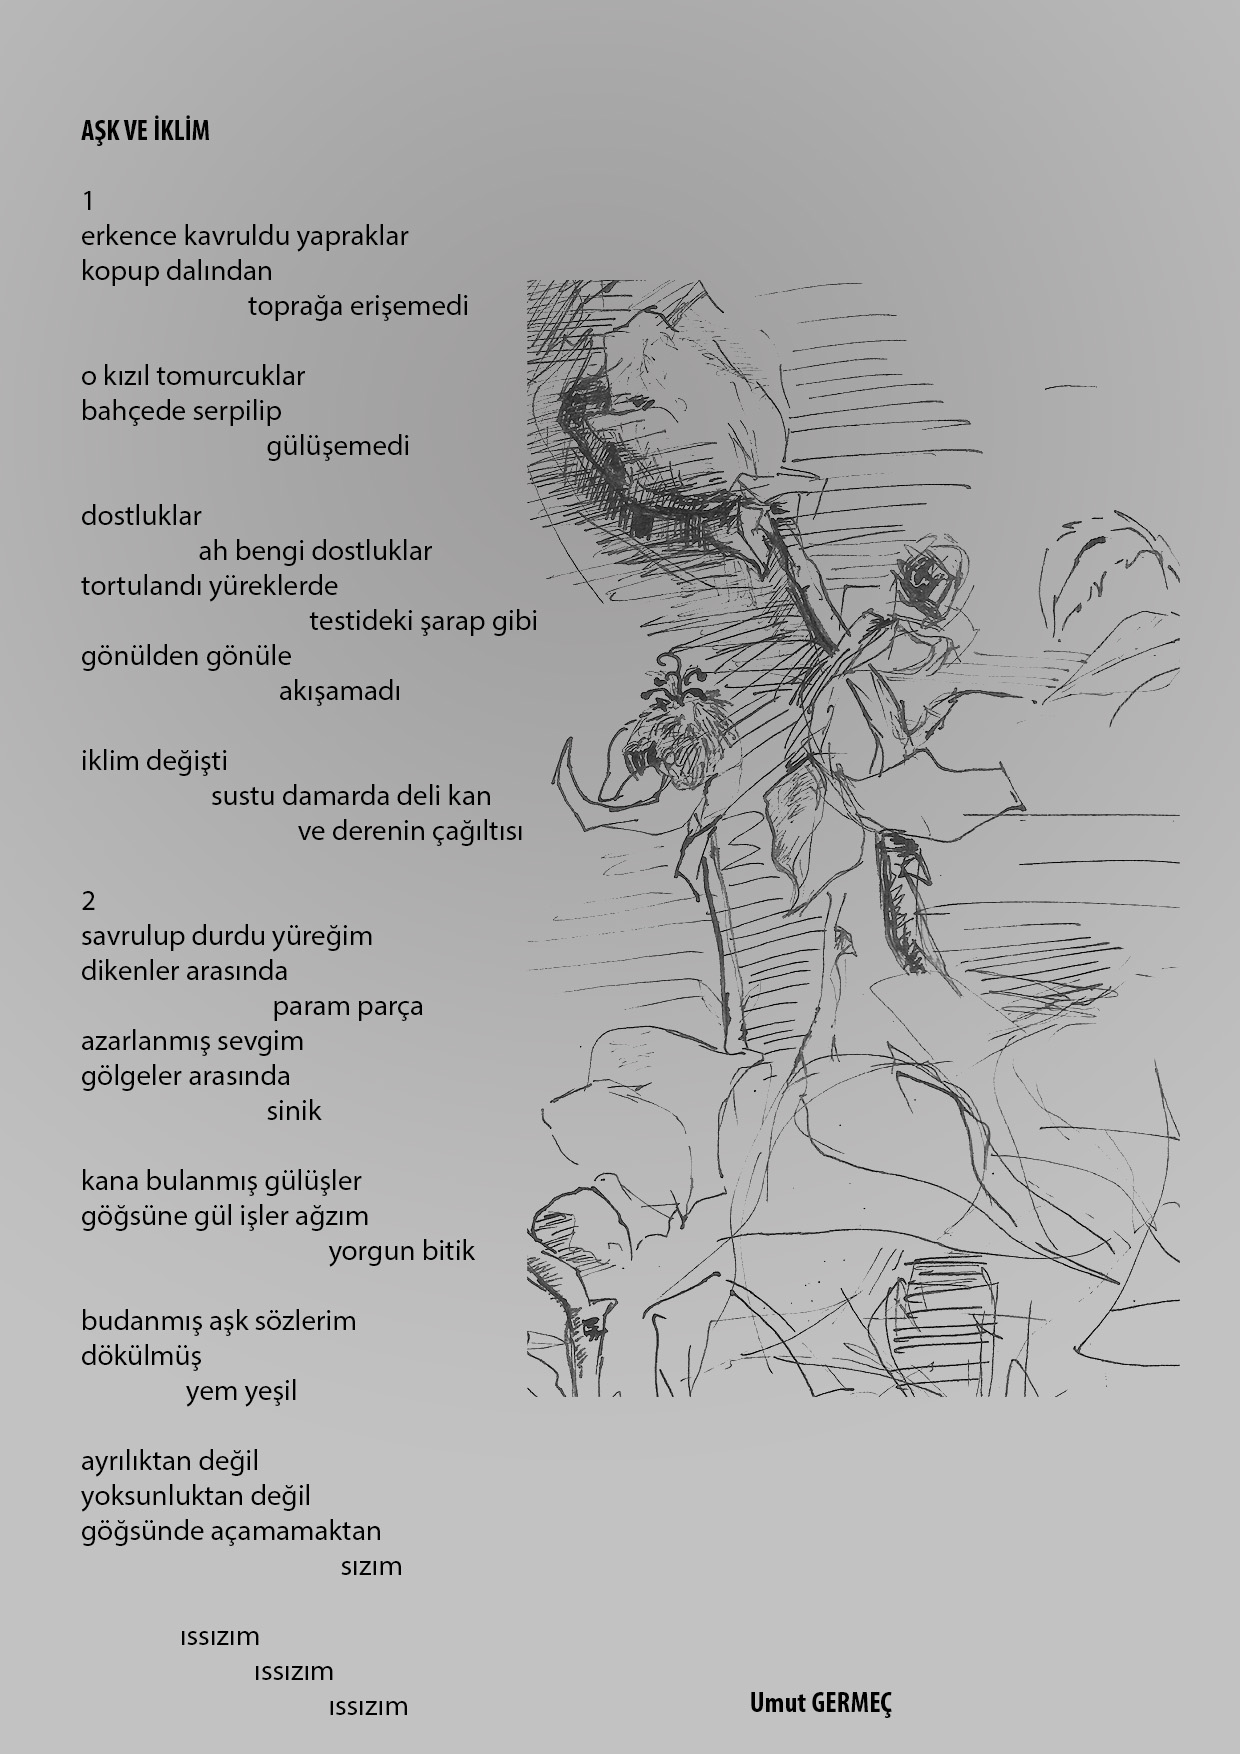 AŞK VE İKLİM
1
erkence kavruldu yapraklar
kopup dalından
toprağa erişemedi
o kızıl tomurcuklar
bahçede serpilip
gülüşemedi
dostluklar
ah bengi dostluklar
tortulandı yüreklerde
testideki şarap gibi
gönülden gönüle
akışamadı
iklim değişti
sustu damarda deli kan
ve derenin çağıltısı
2
savrulup durdu yüreğim
dikenler arasında
param parça
azarlanmış sevgim
gölgeler arasında
sinik
kana bulanmış gülüşler
göğsüne gül işler ağzım
yorgun bitik
budanmış aşk sözlerim
dökülmüş
yem yeşil
ayrılıktan değil
yoksunluktan değil
göğsünde açamamaktan
sızım
ıssızım
ıssızım
ıssızım
Umut GERMEÇ